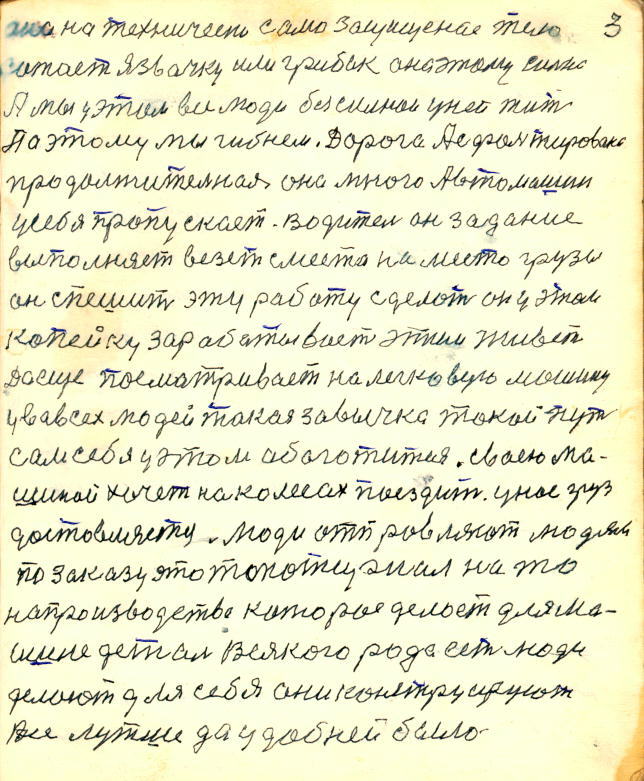 она на технически само защищенае тело 3
отает язвачку или грибок онаэтому силна
А мы уэтом все люди безсилнои уней жит
Паэтому мы гибнем. Дорога Асфолтирована
продолжителная она много Автомашин
усебя пропускает. водител он задание
выполняет везет сместа на место грузы
он спешит эту работу сделот он уэтом
копейку зарабатывает этим живет
Даеще посматривает налегковую мошину
увавсех людей такая завычка токой пут
сам себя уэтом абоготится. своею ма-
шиной хочет на колесах поездит. унас груз
достовляется. Люди отправляют людям
по заказу это
на производстве которое делоет для ма-
шине детал всякого рода сет люди
делоют для себя они конструируют
Все лутше да удобней было